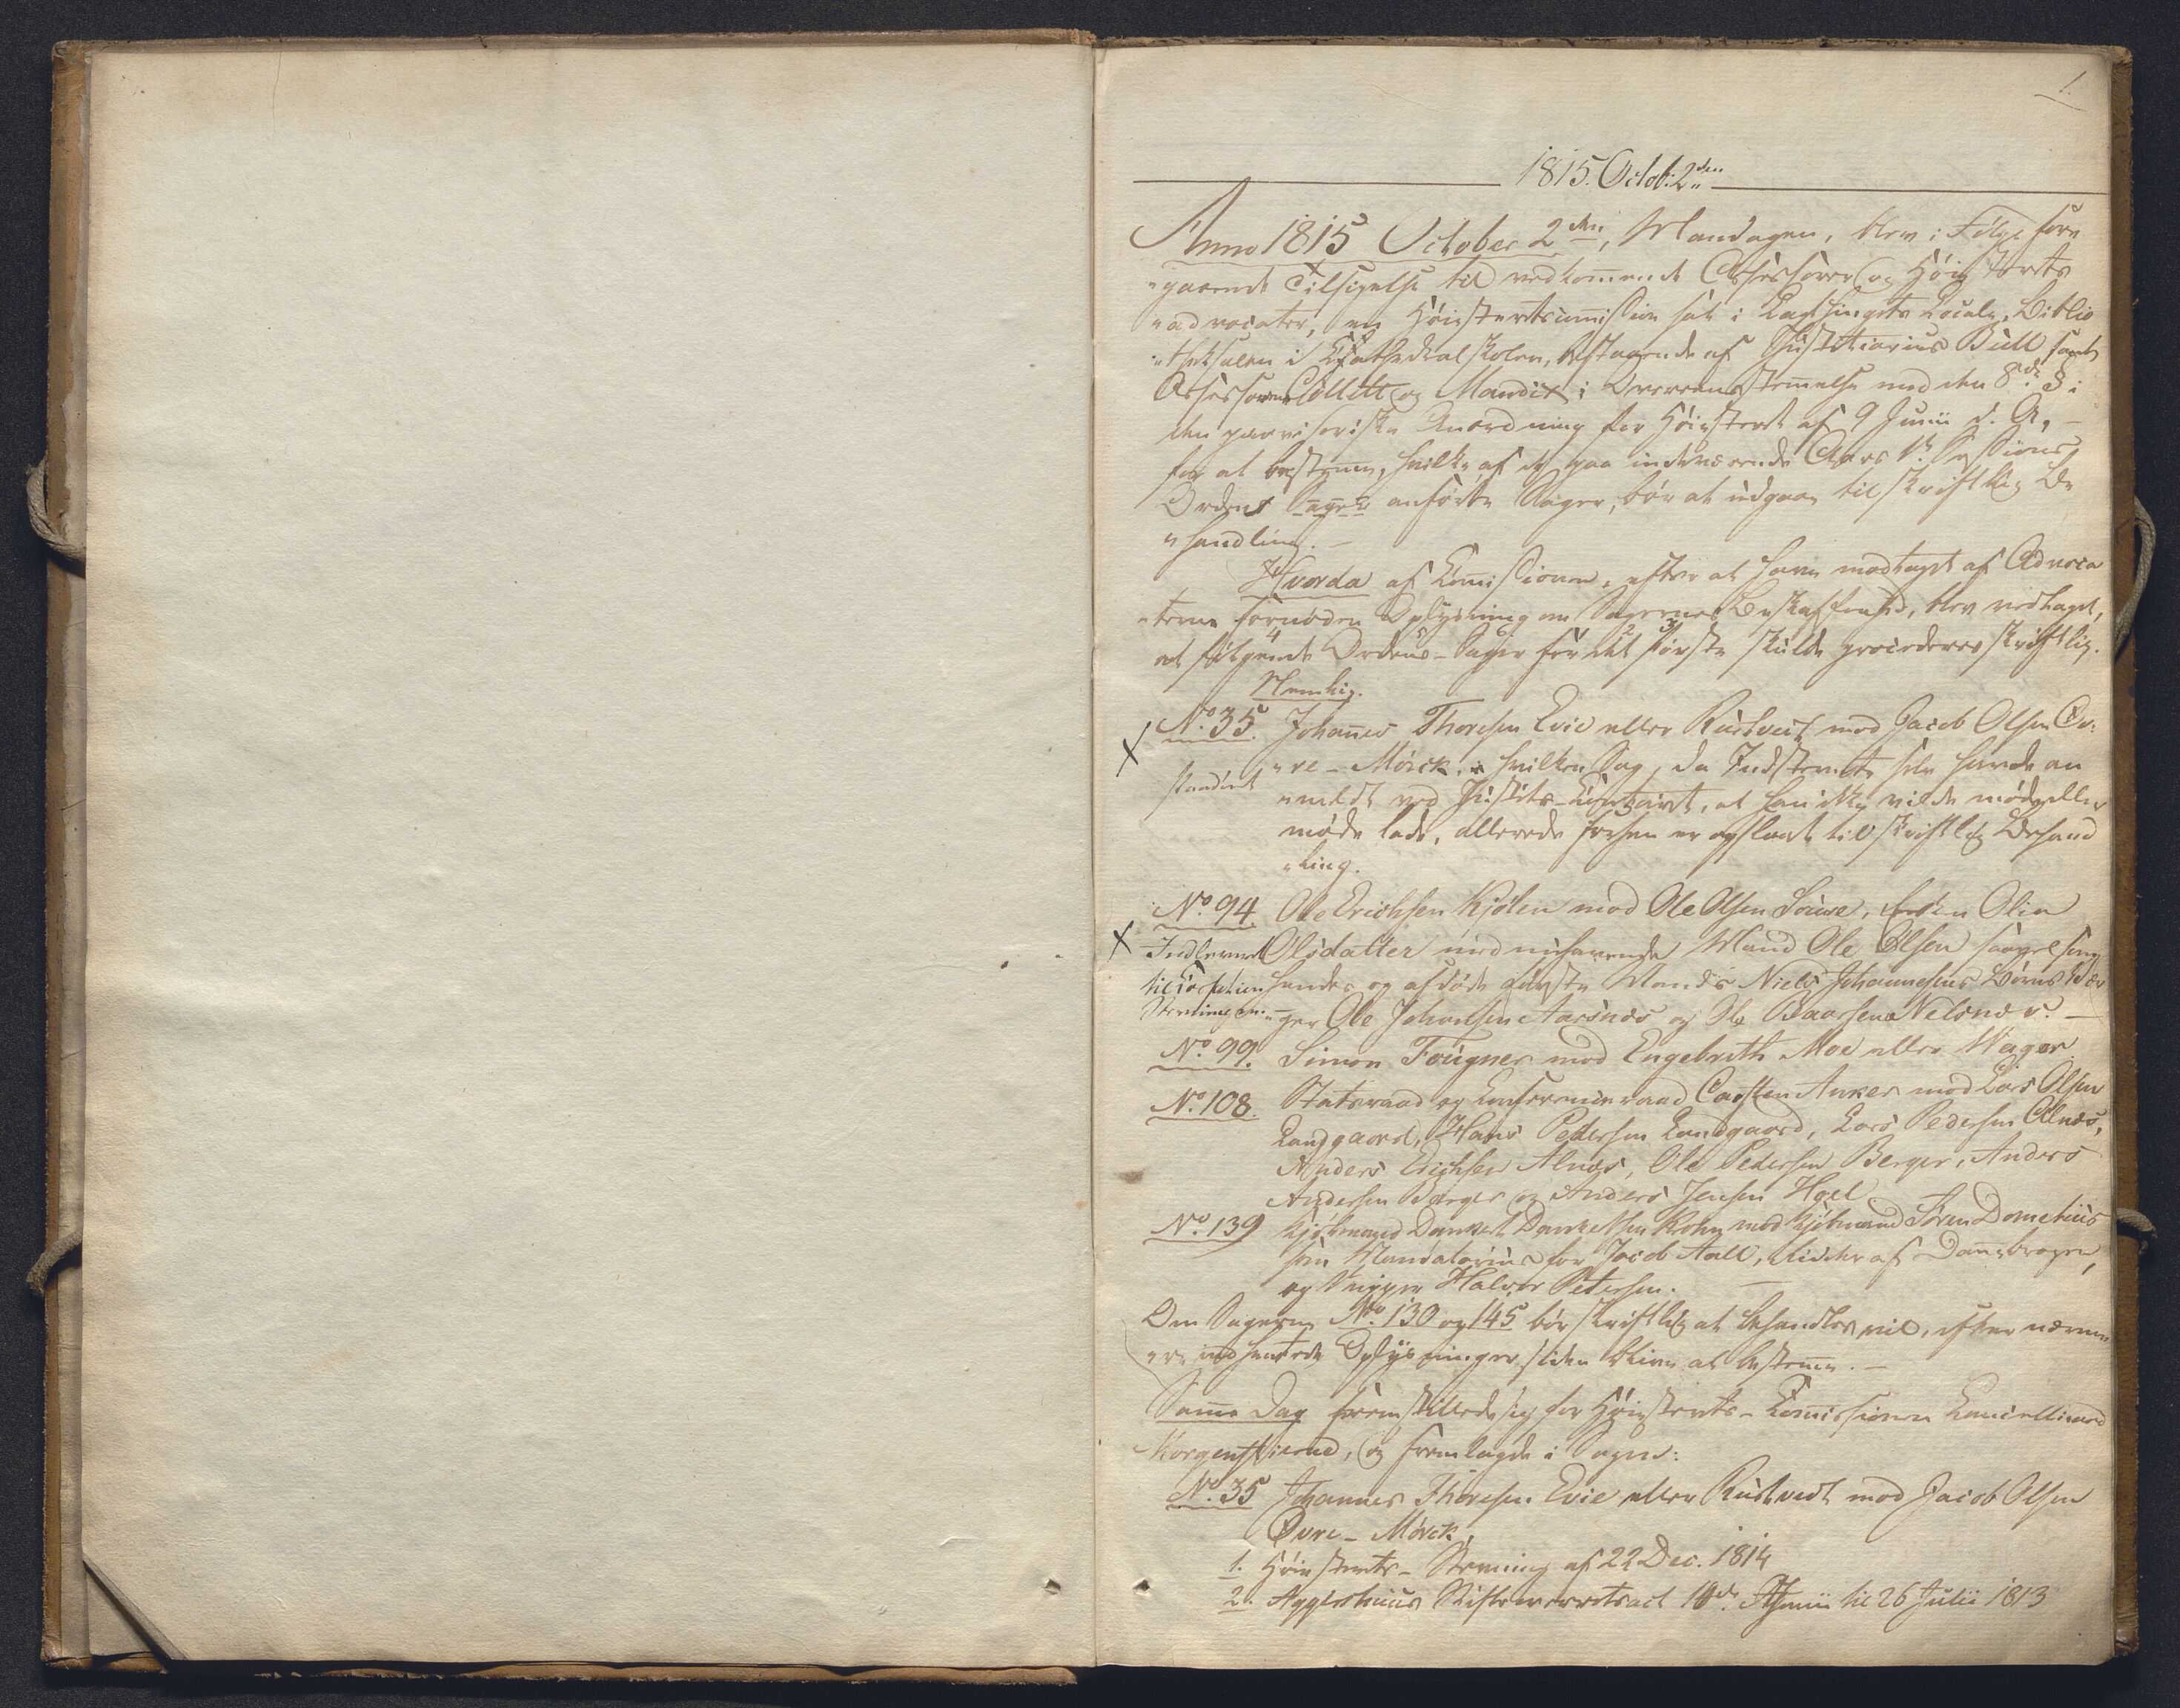 1.
1815. Octob: 2den
Anno 1815 October 2den, Mandagen, blev i Følge fore
"gaaende Tilsigelse til vedkommende Assessorer og Høiesterets
"advocater, en Høiesteretscommission sat i Lagthingets Locale, Biblio
"theksalen i Cathedralskolen, bestaaende af Justitiarius Bull, samt
Assessorerne Collett og Mandix, i Overeensstemmelse med den 8de § i
den provisoriske Anordning for Høiesteret af 9 Junii d. A. –
for at bestemme, hvilke af de paa indeværende Aars 1ste Sessions
Ordens Sager anførte Sager, bør at udgaae til skriftlig Be
"handling. –
Hvorda af Commissionen, efter at have modtaget af Advoca
"terne fornøden Oplysning om Sagernes Beskaffenhed, blev vedtaget,
at følgende Ordens-Sager for det første skulde procederes skriftlig.
Nemlig.
No. 35. Johannes Thoresen Evie eller Rustveit mod Jacob Olsen Øv:
"re-Mörck, i hvilken Sag, da Indstevnte selv havde an
paadömt
"meldt ved Justits-Contoiret, at han ikke vilde møde eller
møde lade, allerede forhen er opslaaet til skriftlig Behand
"ling.
No. 94 Ole Erichsen Kjølen mod Ole Olsen, Enken Olia
Indleveret Olsdatter med nuhavende Mand Ole Olsen saavelsom
hendes og afdøde første Mands Niels Johannesens Børns Vær
"ger Ole Johansen Aarsnæs og Ole Baarsen Nelsnæs. –
No. 99. Simon Fougner mod Engebrith Moe eller Mager
No. 108. Statsraad og Conferenceraad Carsten Anker mod Lars Olsen
Landgaard, Hans Pedersen Landgaard, Lars Pedersen Alnæs,
Anders Erichsen Alnæs, Ole Pedersen Berger, Anders
Andersen Berger og Anders Jensen Hoel
No. 139 Kjøbmand Dankert Dankertsen Krohn mod Kjøbmand Søren Dometius
som Mandatarius for Jacob Aall, Ridder af Dannebrogen,
og Skipper Halvor Petersen.
Om Sagerne No. 130 og 145 bør skriftlig at behandles vil, efter nærme
"re indhentede Oplysninger, siden blive at bestemme. –
Samme Dag fremstillede sig for Høiesterets-Commissionen Cancelliraad
Morgenstierne, og fremlagde i Sagen:
No. 35 Johannes Thoresen Evie eller Rustvedt mod Jacob Olsen
Øvre-Mörck,
1. Høiesterets-Stevning af 22 Dec. 1814
2. Aggershuus Stiftsoverretsact 10de Junii til 26 Julii 1813